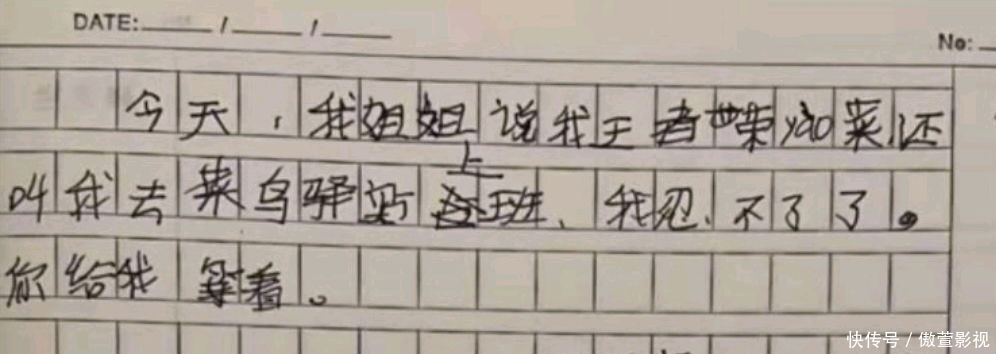 DATE: / /
No:
今天，我姐姐说我王者荣yao菜，还
叫我去菜鸟驿站上班、我忍、不了了。
你给我等着。
快传号 / 傲萱影视